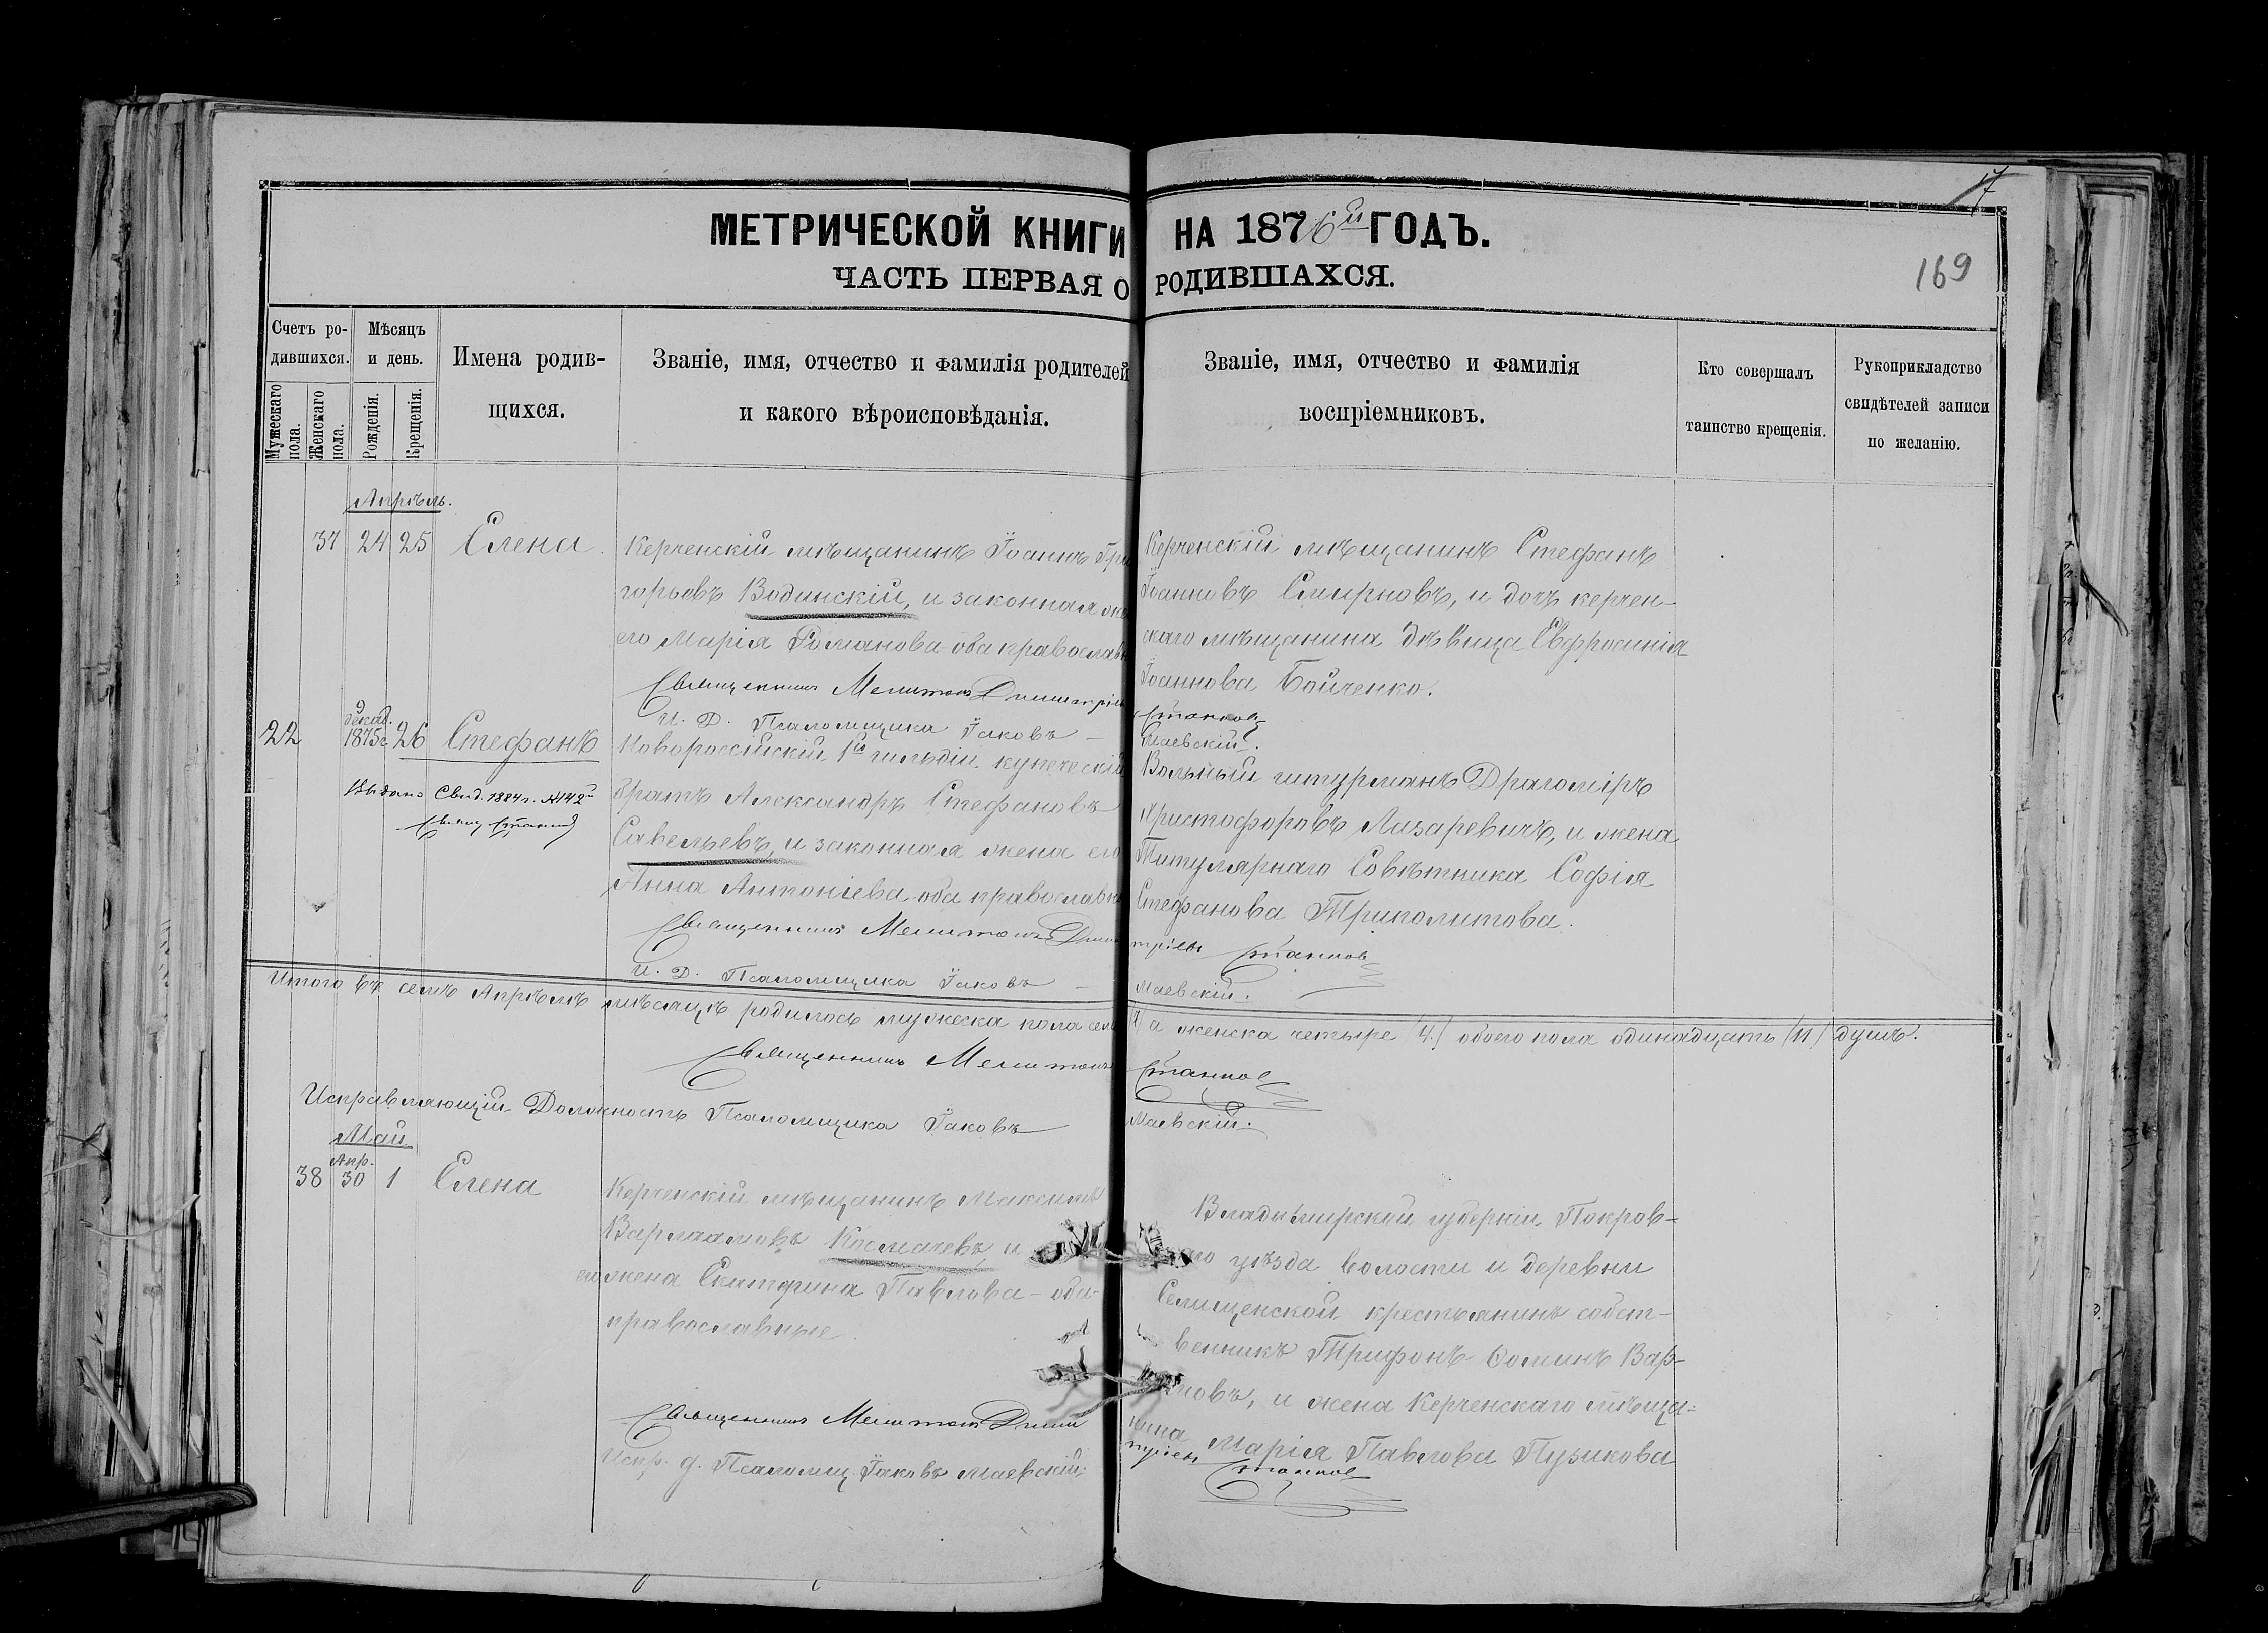 17
МЕТРИЧЕСКОЙ КНИГИ НА 1876й ГОДЪ.
ЧАСТЬ ПЕРВАЯ О РОДИВШАХСЯ.
169
Счетъ ро-
дившихся.
Мужескаго пола.
Женскаго пола.
Мѣсяцъ
и день.
Рожденія.
Крещенія.
Имена родив-
щихся.
Званіе, имя, отчество и фамилія родителей
и какого вѣроисповѣданія.
Званіе, имя, отчество и фамилія
воспріемниковъ.
Кто совершалъ
таинство крещенія.
Рукоприкладство
свидѣтелей записи
по желанію.
Апрѣль.
37 24 25 Елена
Керченскій мѣщанинъ Іоаннъ Гри
горьевъ Водинскій, и законная же
его Марія Романова оба православн
Священникъ Мелитонъ Димитріевъ
И. Д. Псаломщика Іаковъ
Керченскій мѣщанинъ Стефанъ
Іоанновъ Смирновъ, и дочь керчен-
скаго мѣщанина дѣвица Евфросинія
Іоаннова Бойченко.
Станковъ
Маевскій.
22 9 декаб. 1875г. 26 Стефанъ
Выдано Свид. 1884 г. №142й
Новороссійскій 1й гильдіи купеческій
братъ Александръ Стефановъ
Савельевъ, и законная жена его
Анна Антоніева оба православн
Священникъ Мелитонъ Дими
И. Д. Псаломщика Іаковъ
Вольный штурманъ Драгоміръ
Христофоровъ Лазаревичъ, и жена
Титулярнаго Совѣтника Софія
Стефанова Триполитова.
тріевъ Станковъ
Маевскій.
Итого въ семъ Апрѣлѣ мѣсяцѣ родилось мужеска пола семь а женска четыре (4.) обоего пола одинадцать (11) душъ.
Священникъ Мелитонъ Станковъ
Исправляющій Должность Псаломщика Іаковъ Маевскій.
Май
38 Апр. 30 1 Елена
Керченскій мѣщанинъ Максимъ
Варлаамовъ Космачевъ и
его жена Екатерина Павлова - оба
православные
Священникъ Мелитонъ Дими
Испр. д. Псаломщ. Іаковъ Маевскій
Владимирской губерніи Покров-
го уѣзда волости и деревни
Селищенской крестьянинъ собст-
венникъ Трифонъ Ѳоминъ Вар-
новъ, и жена Керченскаго мѣща-
нина Марія Павлова Пузикова
тріевъ Станковъ